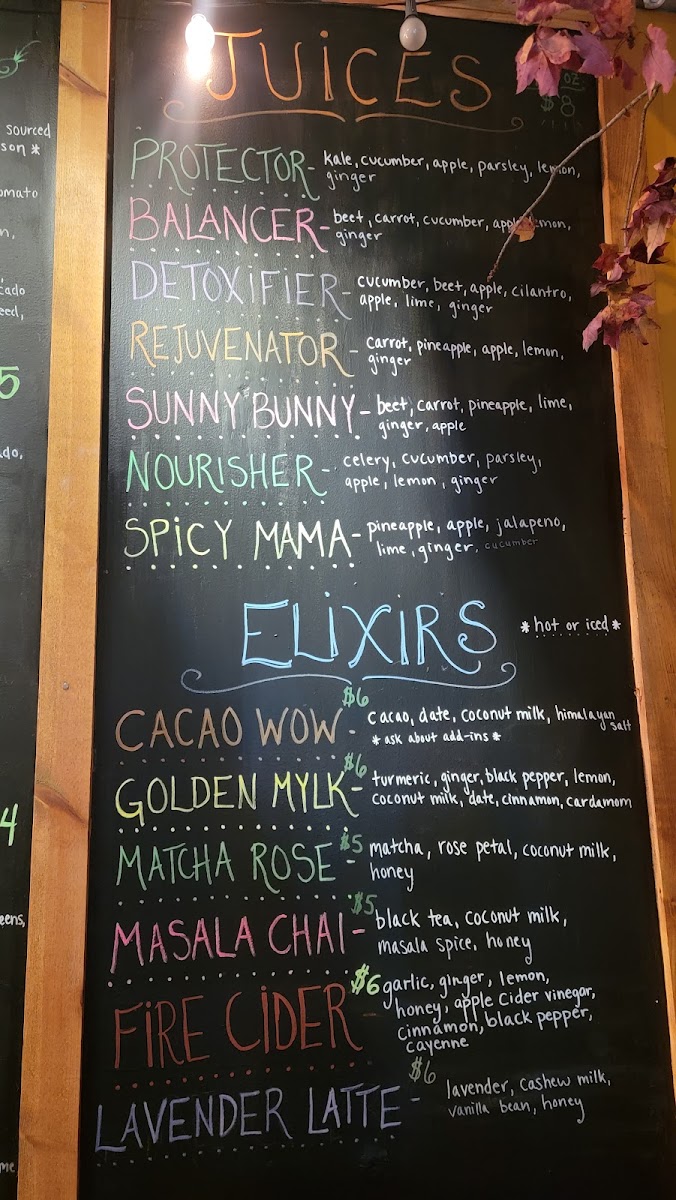 sourced
son *
omato
cado
eed,
5
do,
4
eens,
me
JUICES
oz
$8
PROTECTOR- kale, cucumber, apple, parsley, lemon,
ginger
BALANCER- beet, carrot, cucumber, apple, lemon,
ginger
DETOXIFIER- cucumber, beet, apple, cilantro,
apple, lime, ginger
REJUVENATOR- carrot, pineapple, apple, lemon,
ginger
SUNNY BUNNY- beet, carrot, pineapple, lime,
ginger, apple
NOURISHER- celery, cucumber, parsley,
apple, lemon, ginger
SPICY MAMA- pineapple, apple, jalapeno,
lime, ginger, cucumber
ELIXIRS *hot or iced*
$6
CACAO WOW- cacao, date, coconut milk, himalayan
salt
*ask about add-ins*
$6
GOLDEN MYLK- turmeric, ginger, black pepper, lemon,
coconut milk, date, cinnamon, cardamom
$5
MATCHA ROSE- matcha, rose petal, coconut milk,
honey
$5
MASALA CHAI- black tea, coconut milk,
masala spice, honey
$6
FIRE CIDER garlic, ginger, lemon,
honey, apple cider vinegar,
cinnamon, black pepper,
cayenne
$6
LAVENDER LATTE- lavender, cashew milk,
vanilla bean, honey